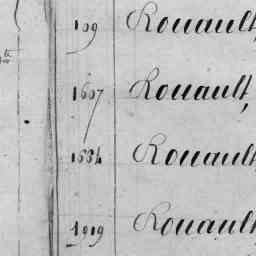 109 Rouault,
1607 Rouault,
1884 Rouault
1919 Rouault,